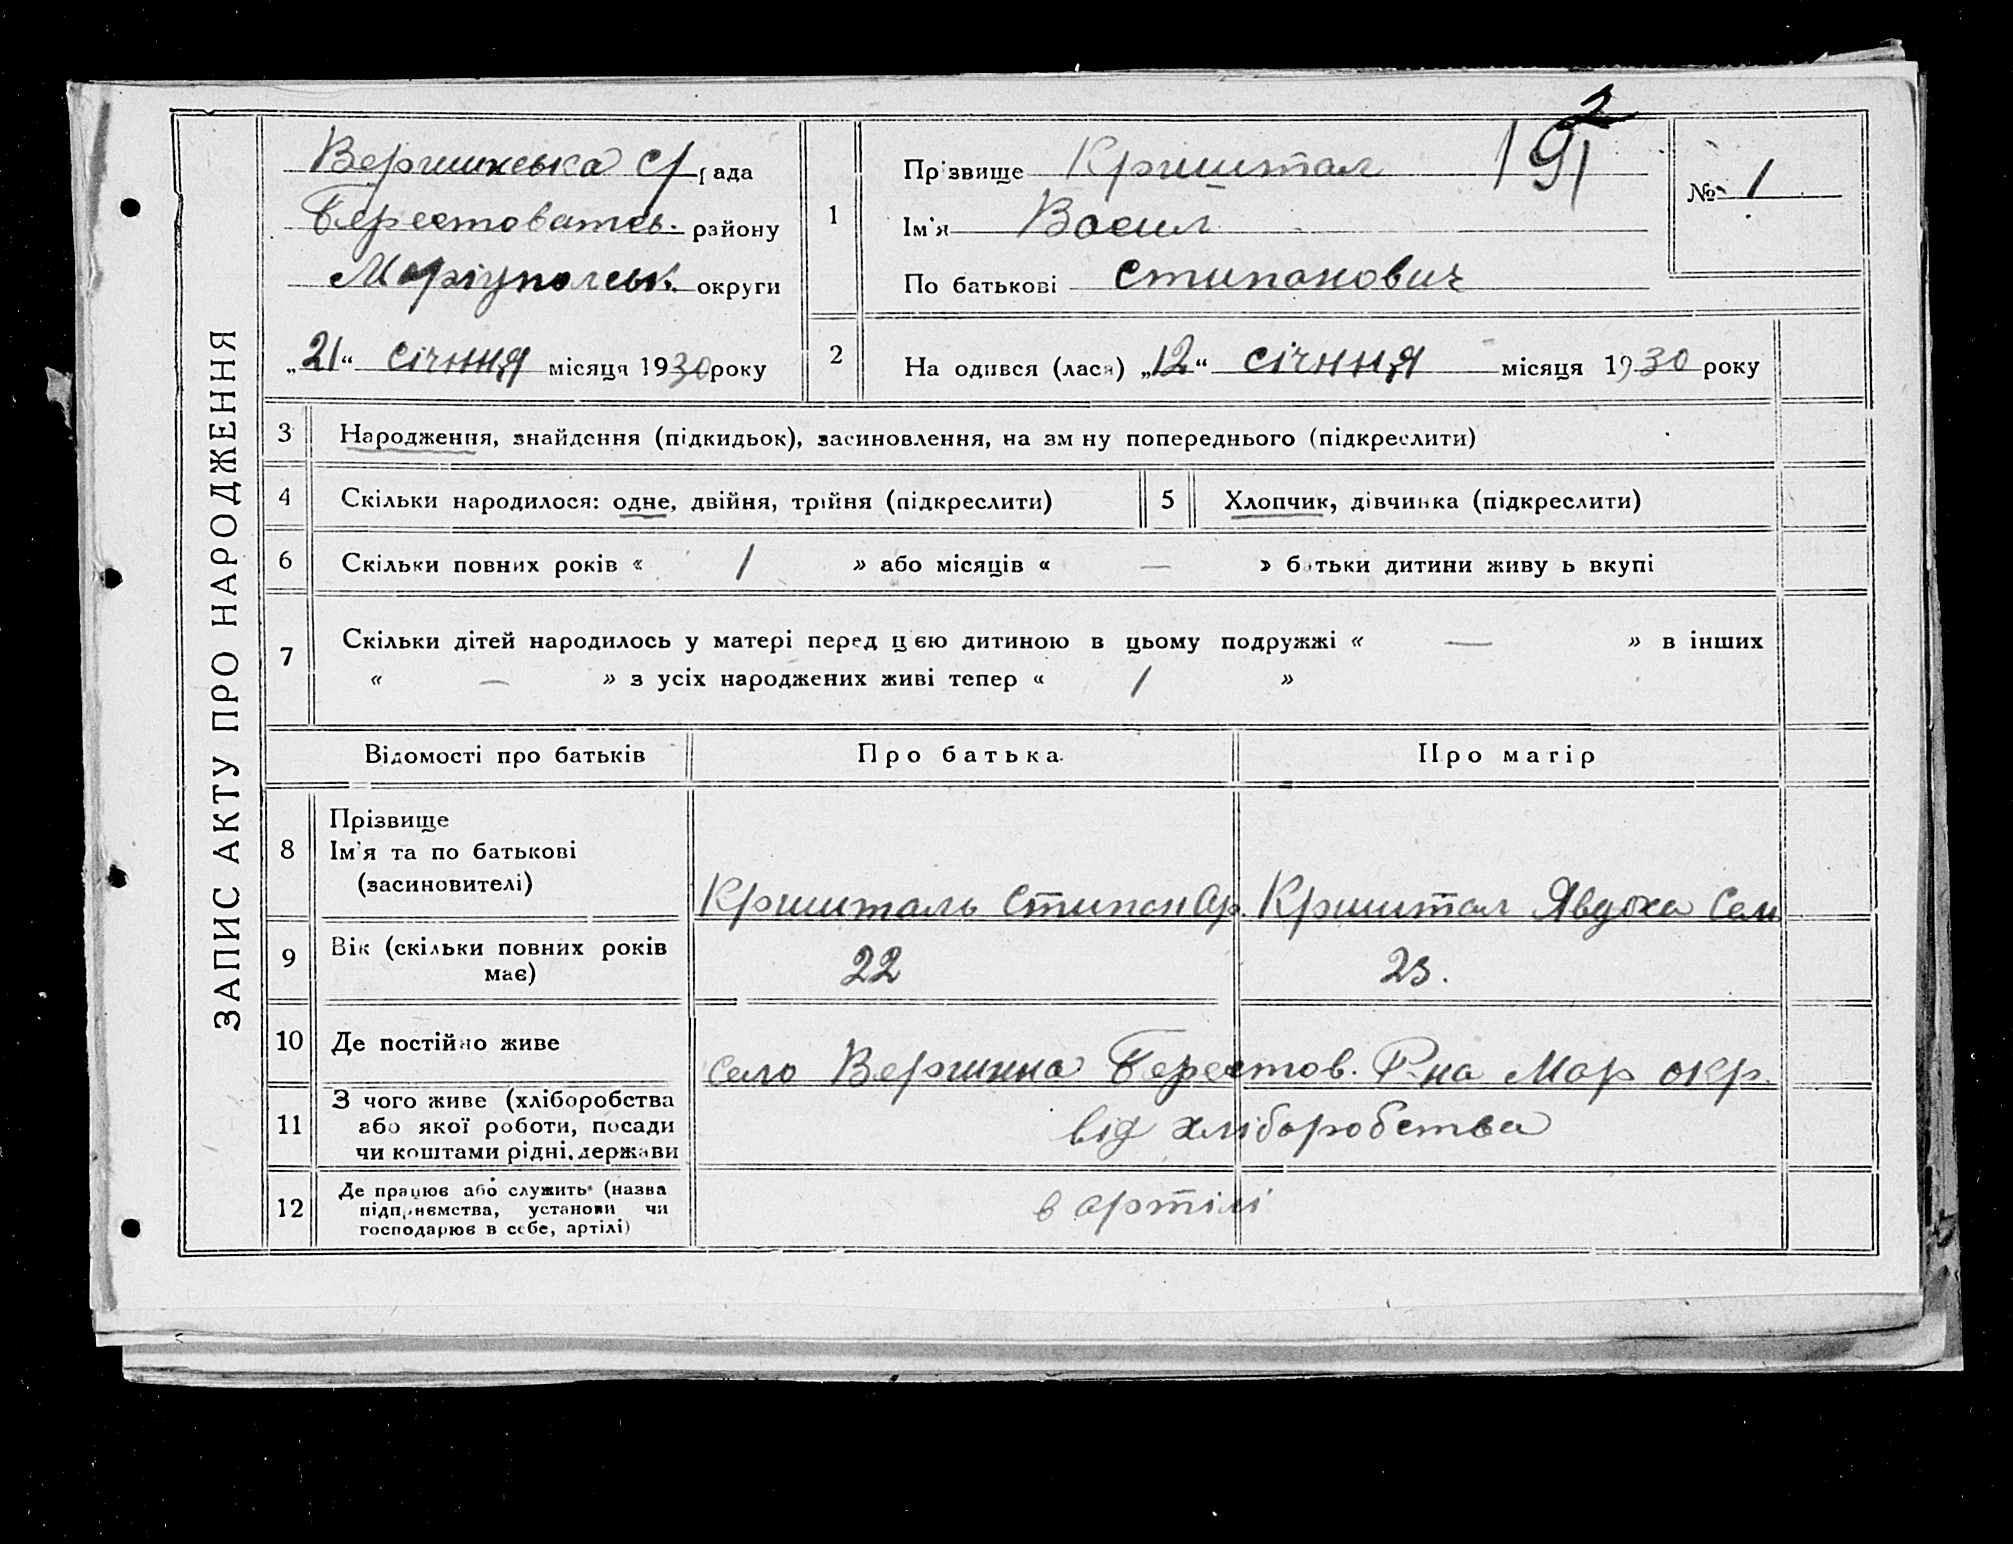 ЗАПИС АКТУ ПРО НАРОДЖЕННЯ
Вершинська с/рада
Берестоватсь. району
Маріупольськ. округи
„21“ січння місяця 1930 року
1
Прізвище Криштал
Ім'я Васил
По батькові Стипанович
191
2
№ 1
2
На одився (лася) „12“ січння місяця 1930 року
3 Народження, знайдення (підкидьок), засиновлення, на зм ну попереднього (підкреслити)
4 Скільки народилося: одне, двійня, трійня (підкреслити)
5 Хлопчик, дівчинка (підкреслити)
6 Скільки повних років « 1 » або місяців « — » батьки дитини живу ь вкупі
7 Скільки дітей народилось у матері перед цією дитиною в цьому подружжі « — » в інших
« — » з усіх народжених живі тепер « 1 »
Відомості про батьків Про батька. Про матір
8 Прізвище
Ім'я та по батькові
(засиновителі)
Кришталь Стипан Ар. Криштал Явдоха Сем
9 Вік (скільки повних років
має)
22 23.
10 Де постійно живе
село Вершина Берестов. Р-на Мар окр.
11 З чого живе (хліборобства
або якої роботи, посади
чи коштами рідні, держави
від хліборобства
12 Де працює або служить (назва
підприємства, установи чи
господарює в себе, артілі)
в артілі